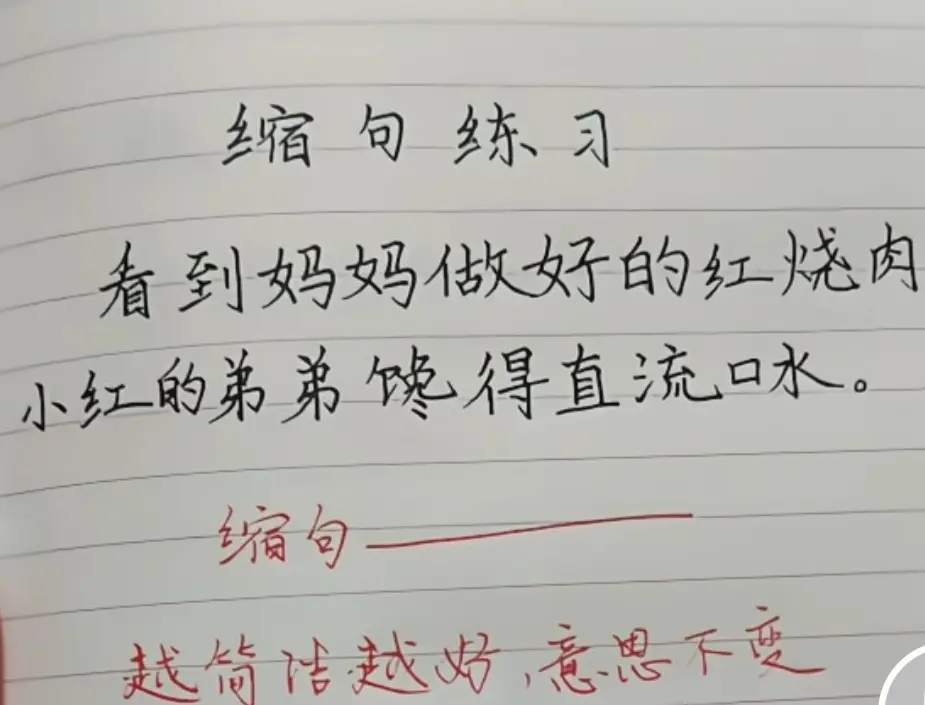 缩句练习
看到妈妈做好的红烧肉
小红的弟弟馋得直流口水。
缩句
越简洁越好,意思不变